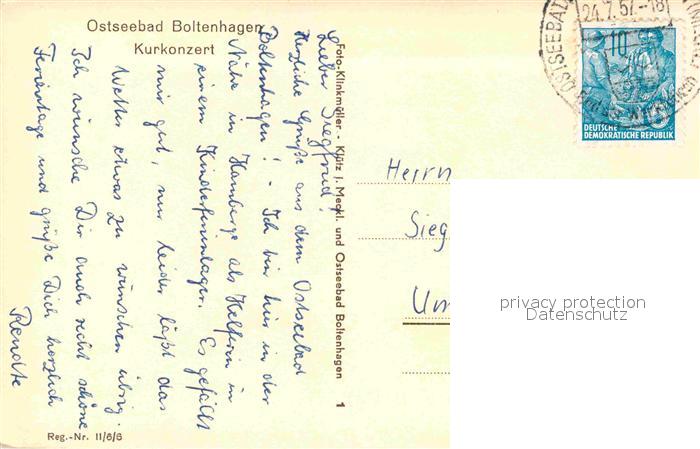 Ostseebad Boltenhagen
Kurkonzert
Lieber Siegfried!
Herzliche Grüße aus dem Ostseebad
Boltenhagen! - Ich bin hier in der
Nähe in Hamberge als Helferin in
einem Kinderferienlager. Es gefällt
mir gut, nur leider läßt das
Wetter etwas zu wünschen übrig.
Ich wünsche Dir auch recht schöne
Ferientage und grüße Dich herzlich
Foto-Klinkmüller - Klütz i. Meckl. und Ostseebad Boltenhagen 1
Reg.-Nr. 11/6/6
OSTSEEBAD
24.7.57.-18
10
DEUTSCHE
DEMOKRATISCHE REPUBLIK
Herrn
Sieg
Um
privacy protection
Datenschutz